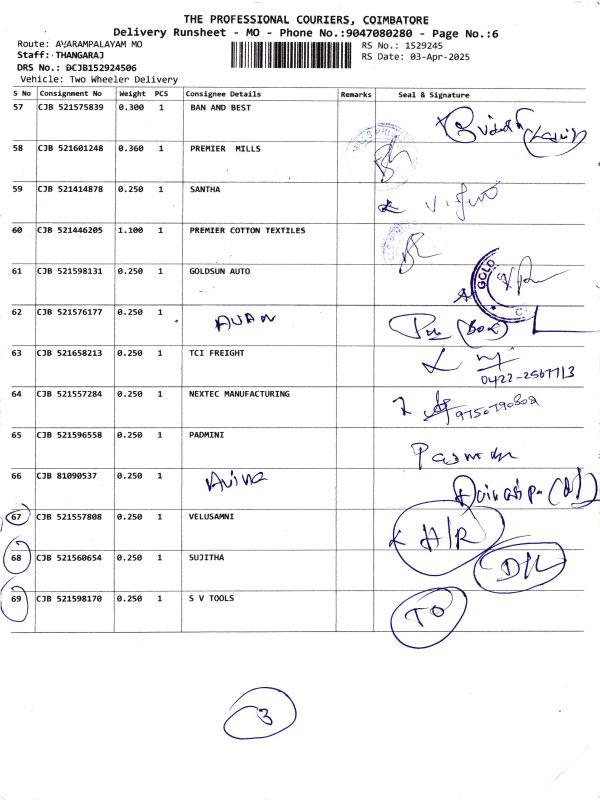 THE PROFESSIONAL COURIERS, COIMBATORE
Delivery Runsheet - MO - Phone No.:9047080280 - Page No.:6
Route: AVARAMPALAYAM MO
RS No.: 1529245
Staff: THANGARAJ
RS Date: 03-Apr-2025
DRS No.: DCJB152924506
Vehicle: Two Wheeler Delivery
S No Consignment No Weight PCS Consignee Details Remarks Seal & Signature
57 CJB 521575839 0.300 1 BAN AND BEST
58 CJB 521601248 0.360 1 PREMIER MILLS
59 CJB 521414878 0.250 1 SANTHA
60 CJB 521446205 1.100 1 PREMIER COTTON TEXTILES
61 CJB 521598131 0.250 1 GOLDSUN AUTO GOLD
62 CJB 521576177 0.250 1
63 CJB 521658213 0.250 1 TCI FREIGHT
0422-2567713
64 CJB 521557284 0.250 1 NEXTEC MANUFACTURING 9750790802
65 CJB 521596558 0.250 1 PADMINI
66 CJB 81090537 0.250 1
67 CJB 521557808 0.250 1 VELUSAMNI H/R
68 CJB 521560654 0.250 1 SUJITHA D/L
69 CJB 521598170 0.250 1 S V TOOLS TO
3